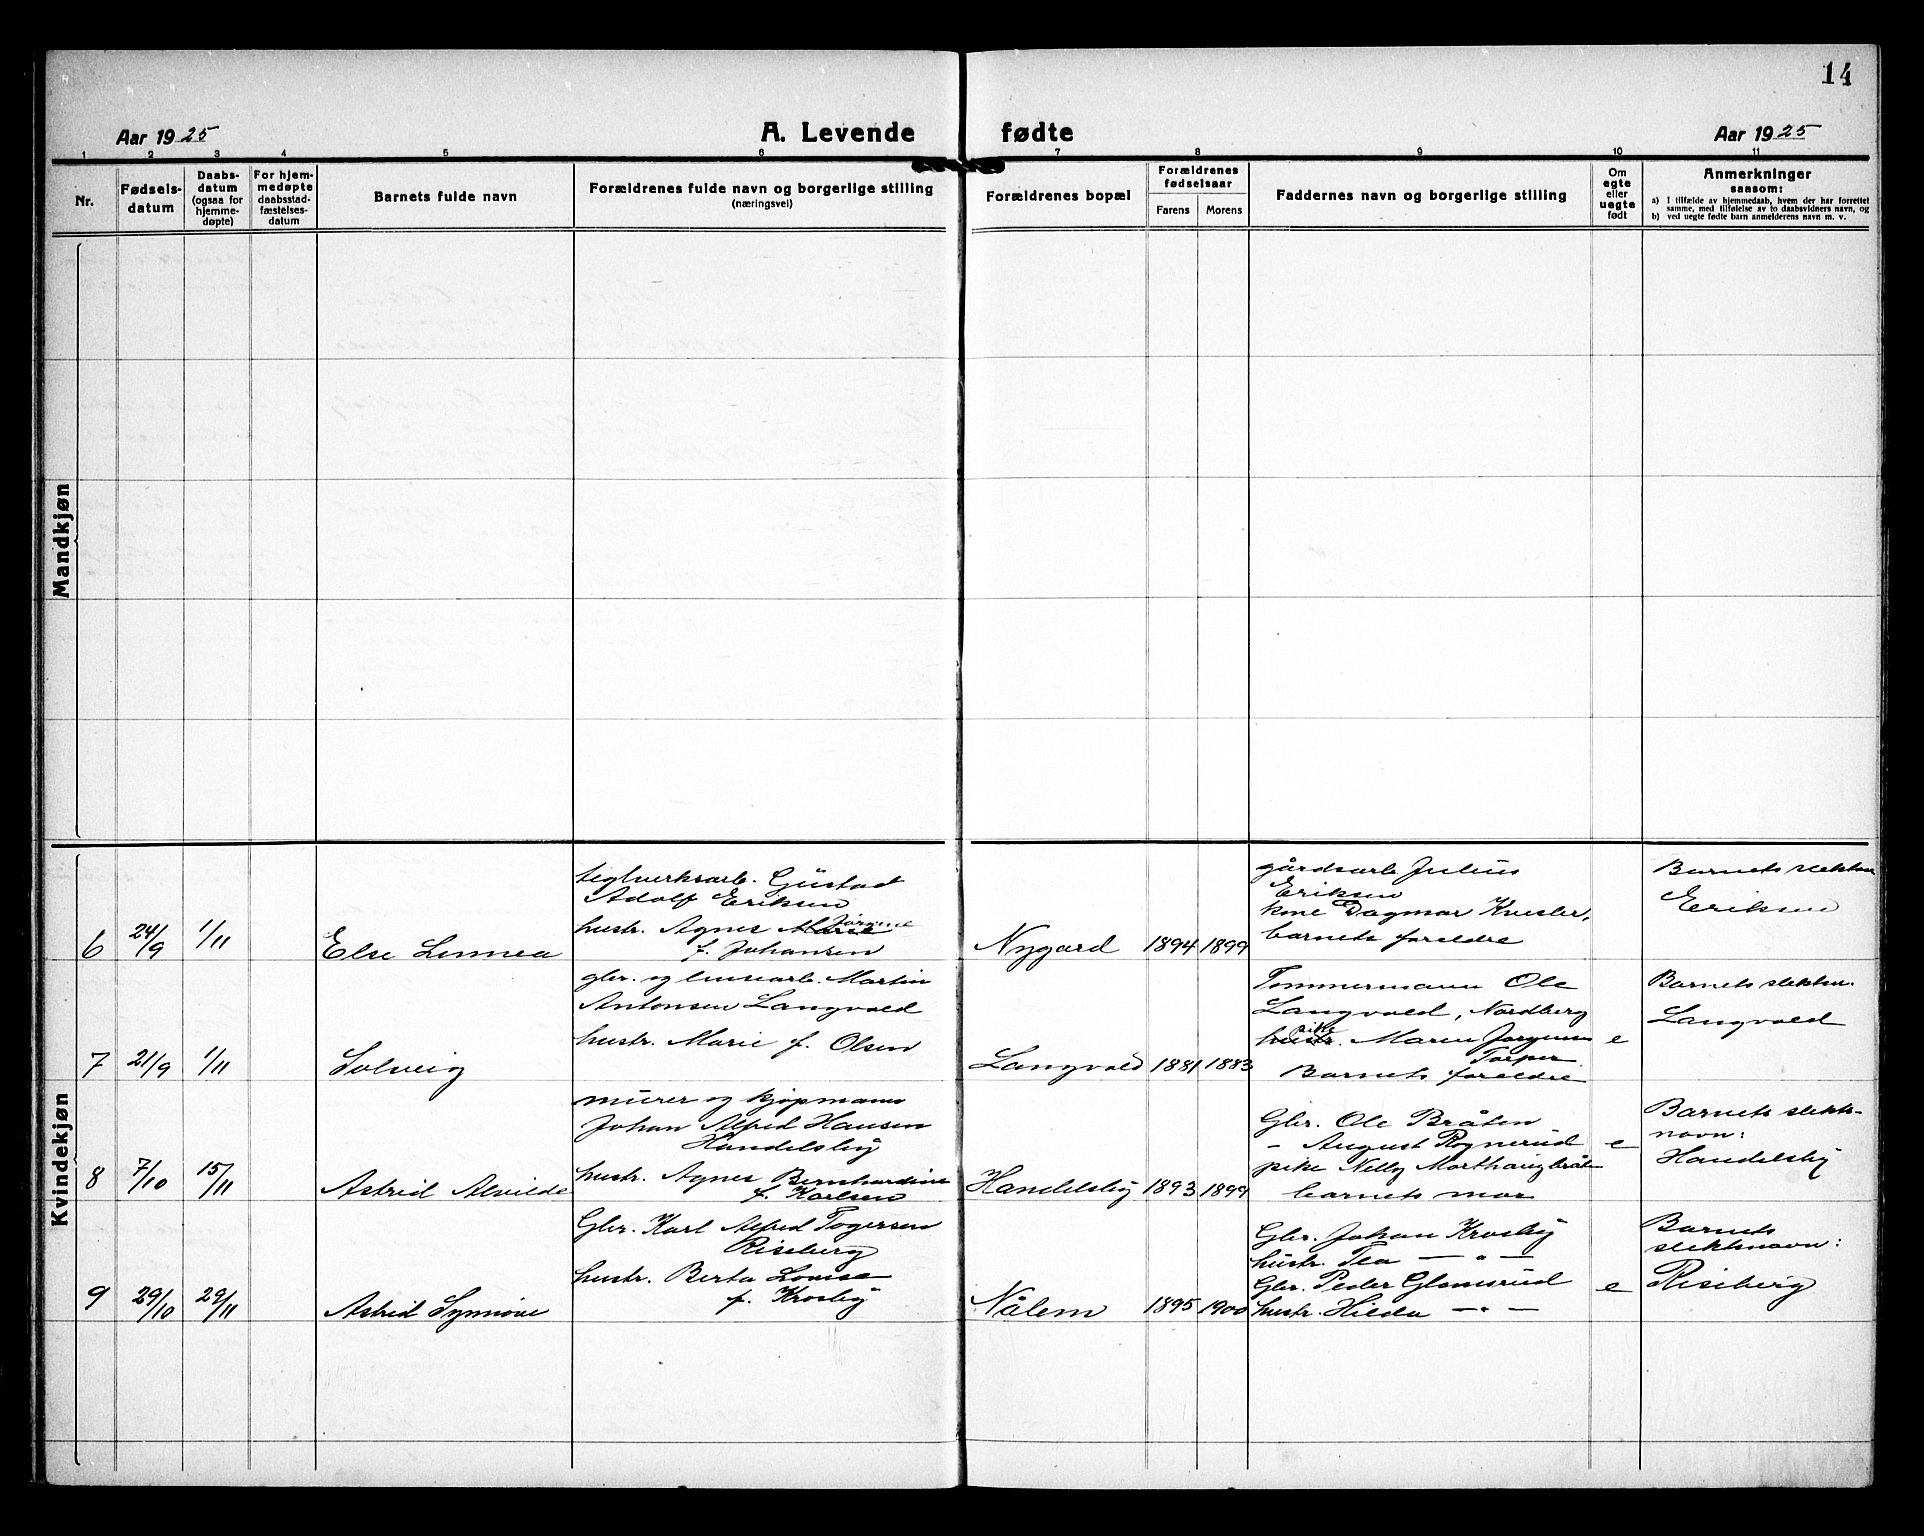 14
Aar 1925
A. Levende fødte
Aar 1925
1 2 3 4 5 6 7 8 9 10 11
Nr.
Fødselsdatum
Daabsdatum (ogsaa for hjemmedøpte)
For hjemmedøpte daabsstadfæstelsesdatum
Barnets fulde navn
Forældrenes fulde navn og borgerlige stilling (næringsvei)
Forældrenes bopæl
Forældrenes fødselsaar
Farens
Morens
Faddernes navn og borgerlige stilling
Om egte eller uegte født
Anmerkninger saasom:
a) I tilfælde av hjemmedaab, hvem der har forrettet samme, med tilføielse av to daabsvidners navn, og
b) ved uegte fødte barn anmelderens navn m. v.
Mandkjøn
Kvindekjøn
6
24/9
1/11
Else Linnea
teglverksarb. Gustad
Adolf Eriksen
hustr. Agnes Marie Jørgine
f. Johansen
Nygard
1894 1899
gårdsarb Julius
Eriksen
kone Dagmar Kvesler,
barnets foreldre
Barnets slektsn
Eriksen
7
21/9
1/11
Solveig
gbr. og linsearb. Martin
Antonsen Langvold
hustr. Marie f. Olsen
Langvold
1881 1883
Tømmermann Ole
Langvold, Nordberg
hustr. pike Maren Jørgensen
Torper
Barnets foreldre
e
Barnets slektsn.
Langvold
8
7/10
15/11
Astrid Alvilde
murer og kjøpmann
Johan Alfred Hansen
Handelsby
hustr. Agnes Bernhardine
f. Karlsen
Handelsby
1893 1899
Gbr. Ole Bråten
- August Rognerud
pike Nelly Morthaugbråten
barnets mor
e
Barnets slekts-
navn:
Handelsby
9
29/10
29/11
Astrid Synnøve
Gbr. Karl Alfred Togersen
Riseberg
hustr. Berta Lovise
f. Krosby
Nålem
1895 1900
Gbr. Johan Krosby
hustr. Tea — " —
Gbr. Peder Glomsrud
hustr. Hilda — " —
e
Barnets
slektsnavn:
Riseberg